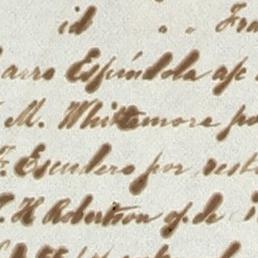 id " " Fra
arro Espíndola apc
M. Whittemore po
F. Escudero por resto
H Robertson op. de